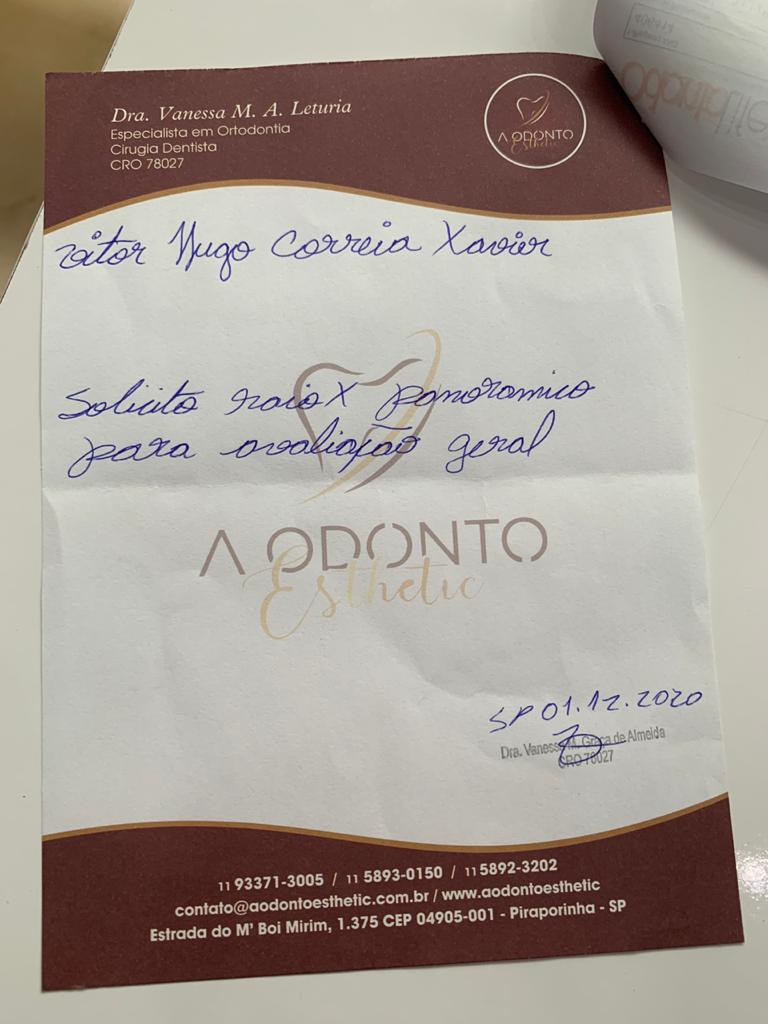 Dra. Vanessa M. A. Leturia
Especialista em Ortodontia
Cirugia Dentista
CRO 78027
A ODONTO
Esthetic
Vitor Hugo Correia Xavier
Solicito raio X panoramico
para avaliação geral
A ODONTO
Esthetic
SP 01.12.2020
Dra. Vanessa M. Graça de Almeida
CRO 78027
11 93371-3005 / 11 5893-0150 / 11 5892-3202
contato@aodontoesthetic.com.br / www.aodontoesthetic
Estrada do M' Boi Mirim, 1.375 CEP 04905-001 - Piraporinha - SP